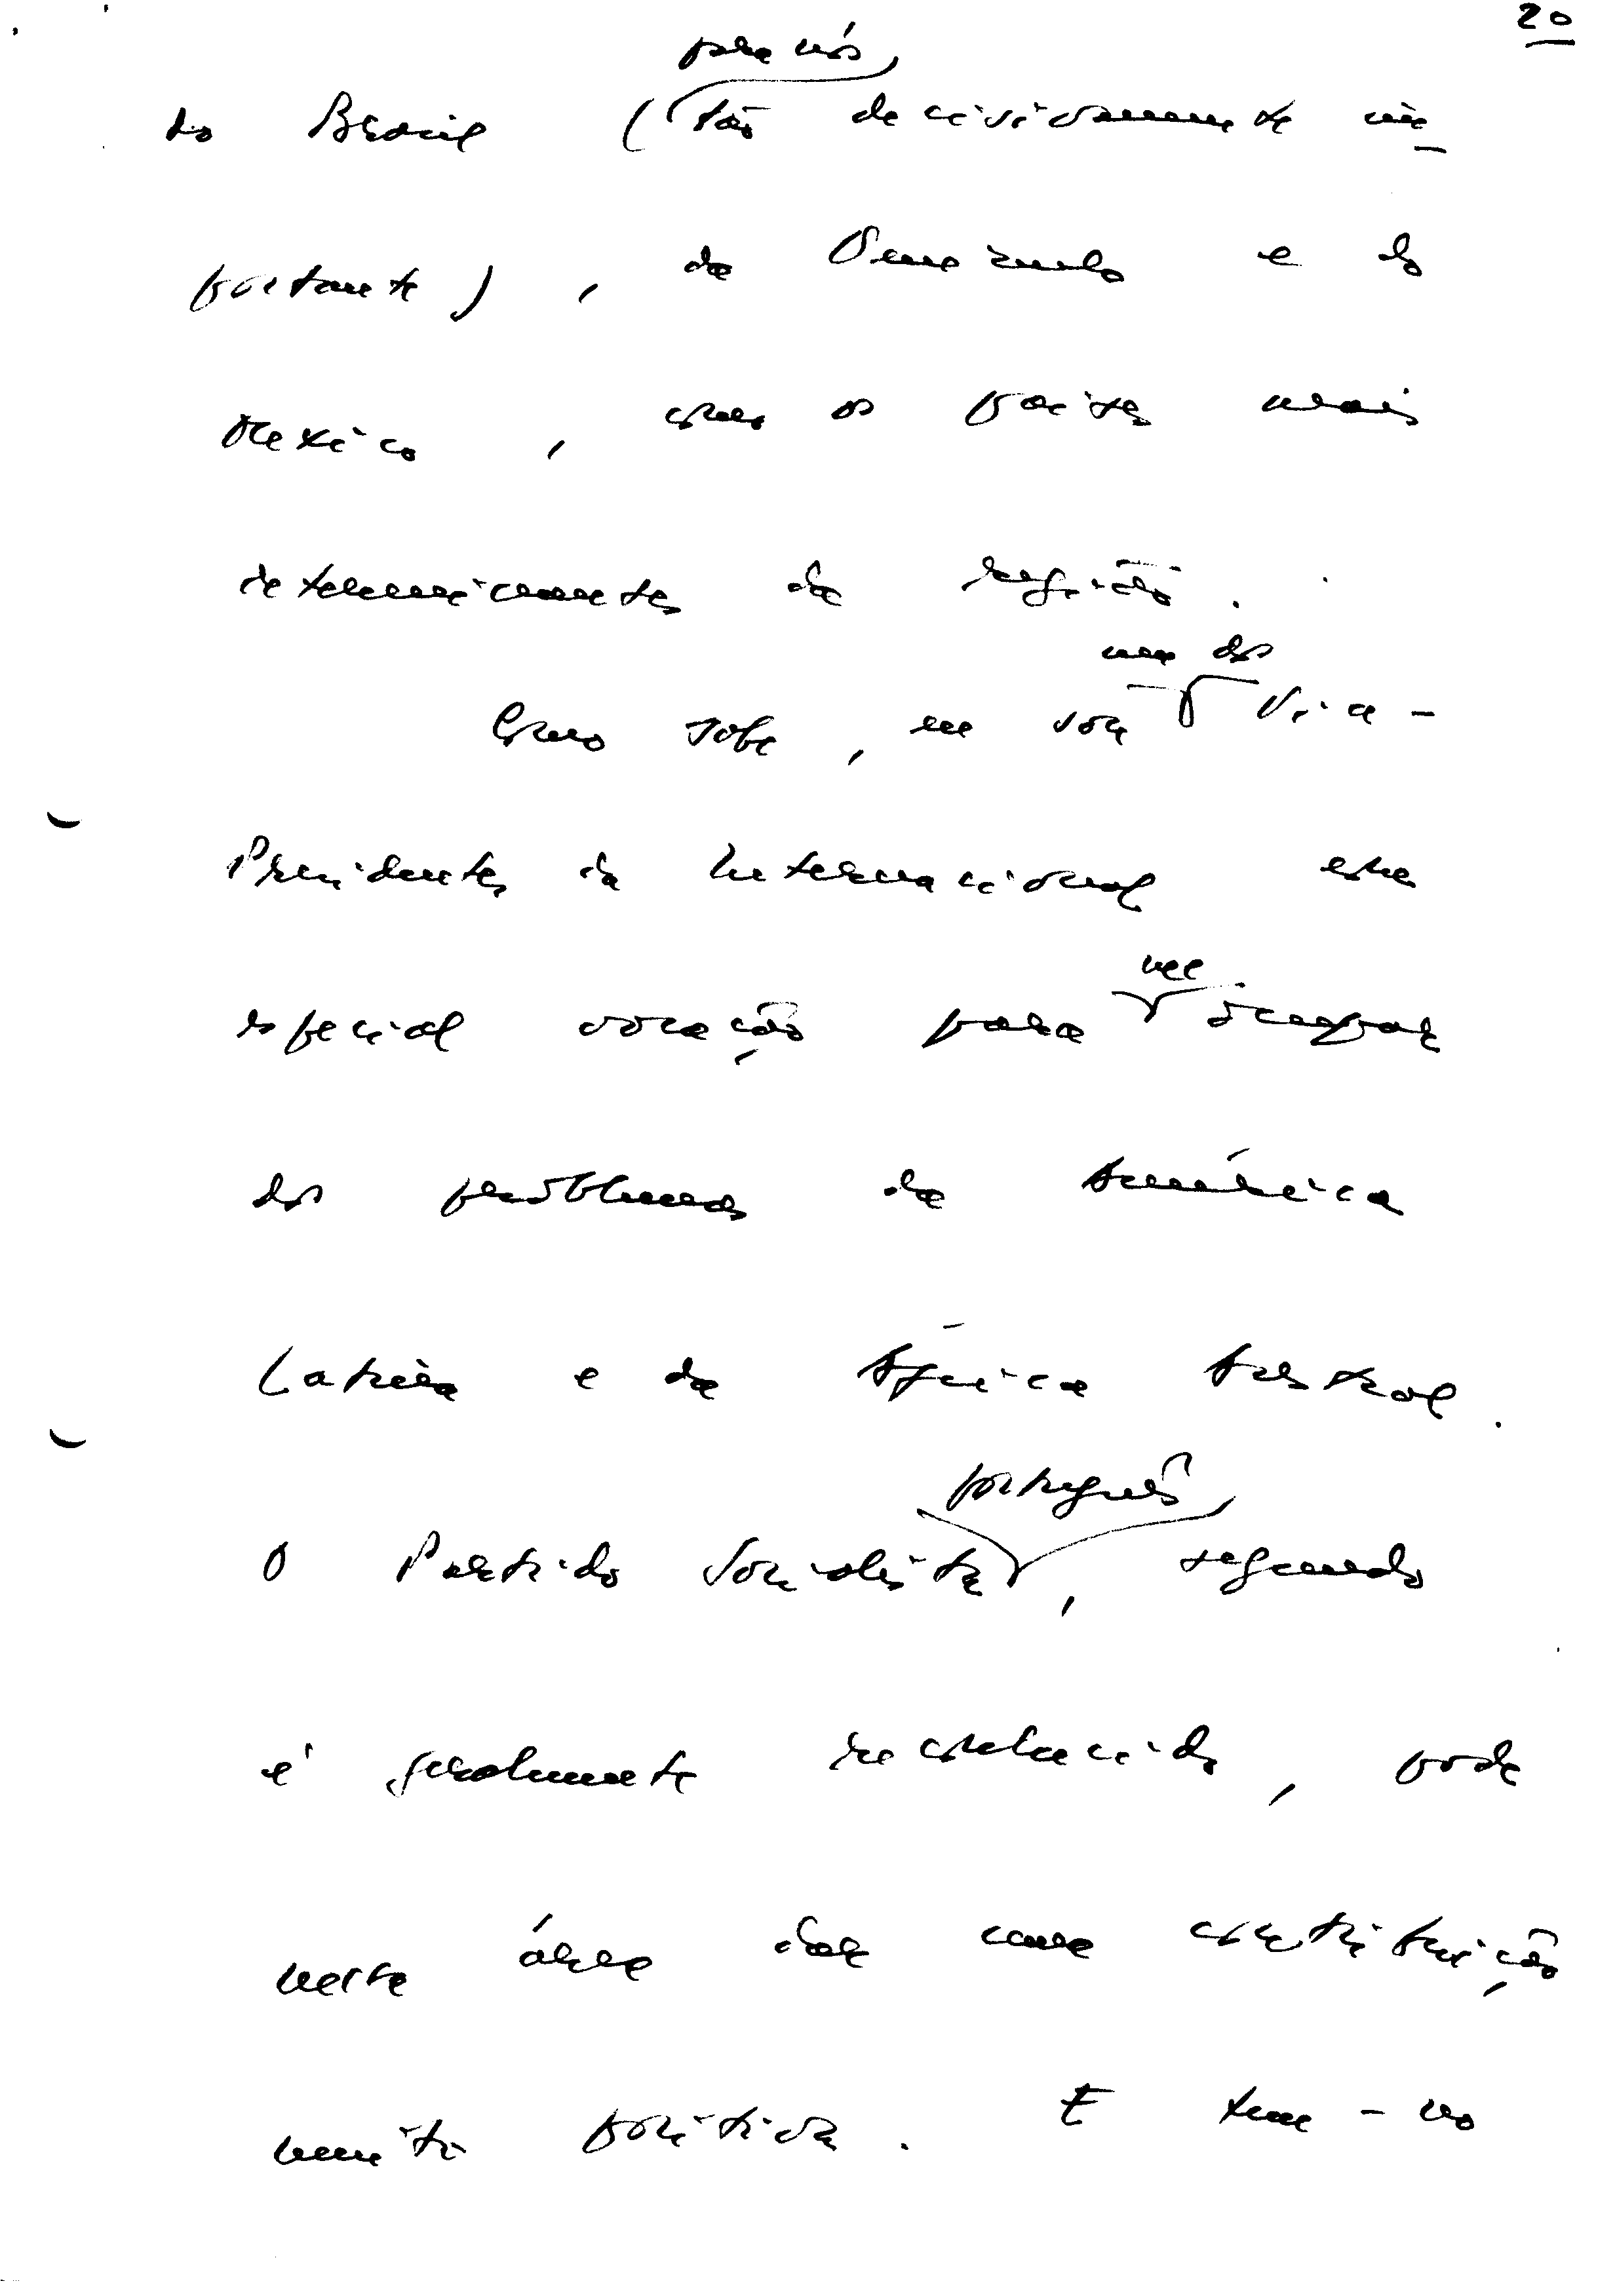 20
para nós
do Brasil ( tão decisivamente im
portante ) , da Venezuela e do
México , como os países mais
determinantes da região .
um dos
Como sabe , eu sou Vice -
Presidentes da Internacional com
especial vocação para me ocupar
dos problemas da América
Latina e da África Austral .
português
O Partido Socialista , segundo
é geralmente reconhecido , pode
nesta área dar uma contribuição
muito positiva . E tem - no